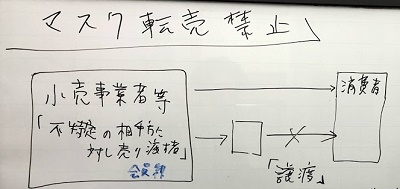 マスク転売禁止
小売事業者等
「不特定の相手方に
対し売り渡す者」
会員制
消費者
「譲渡」